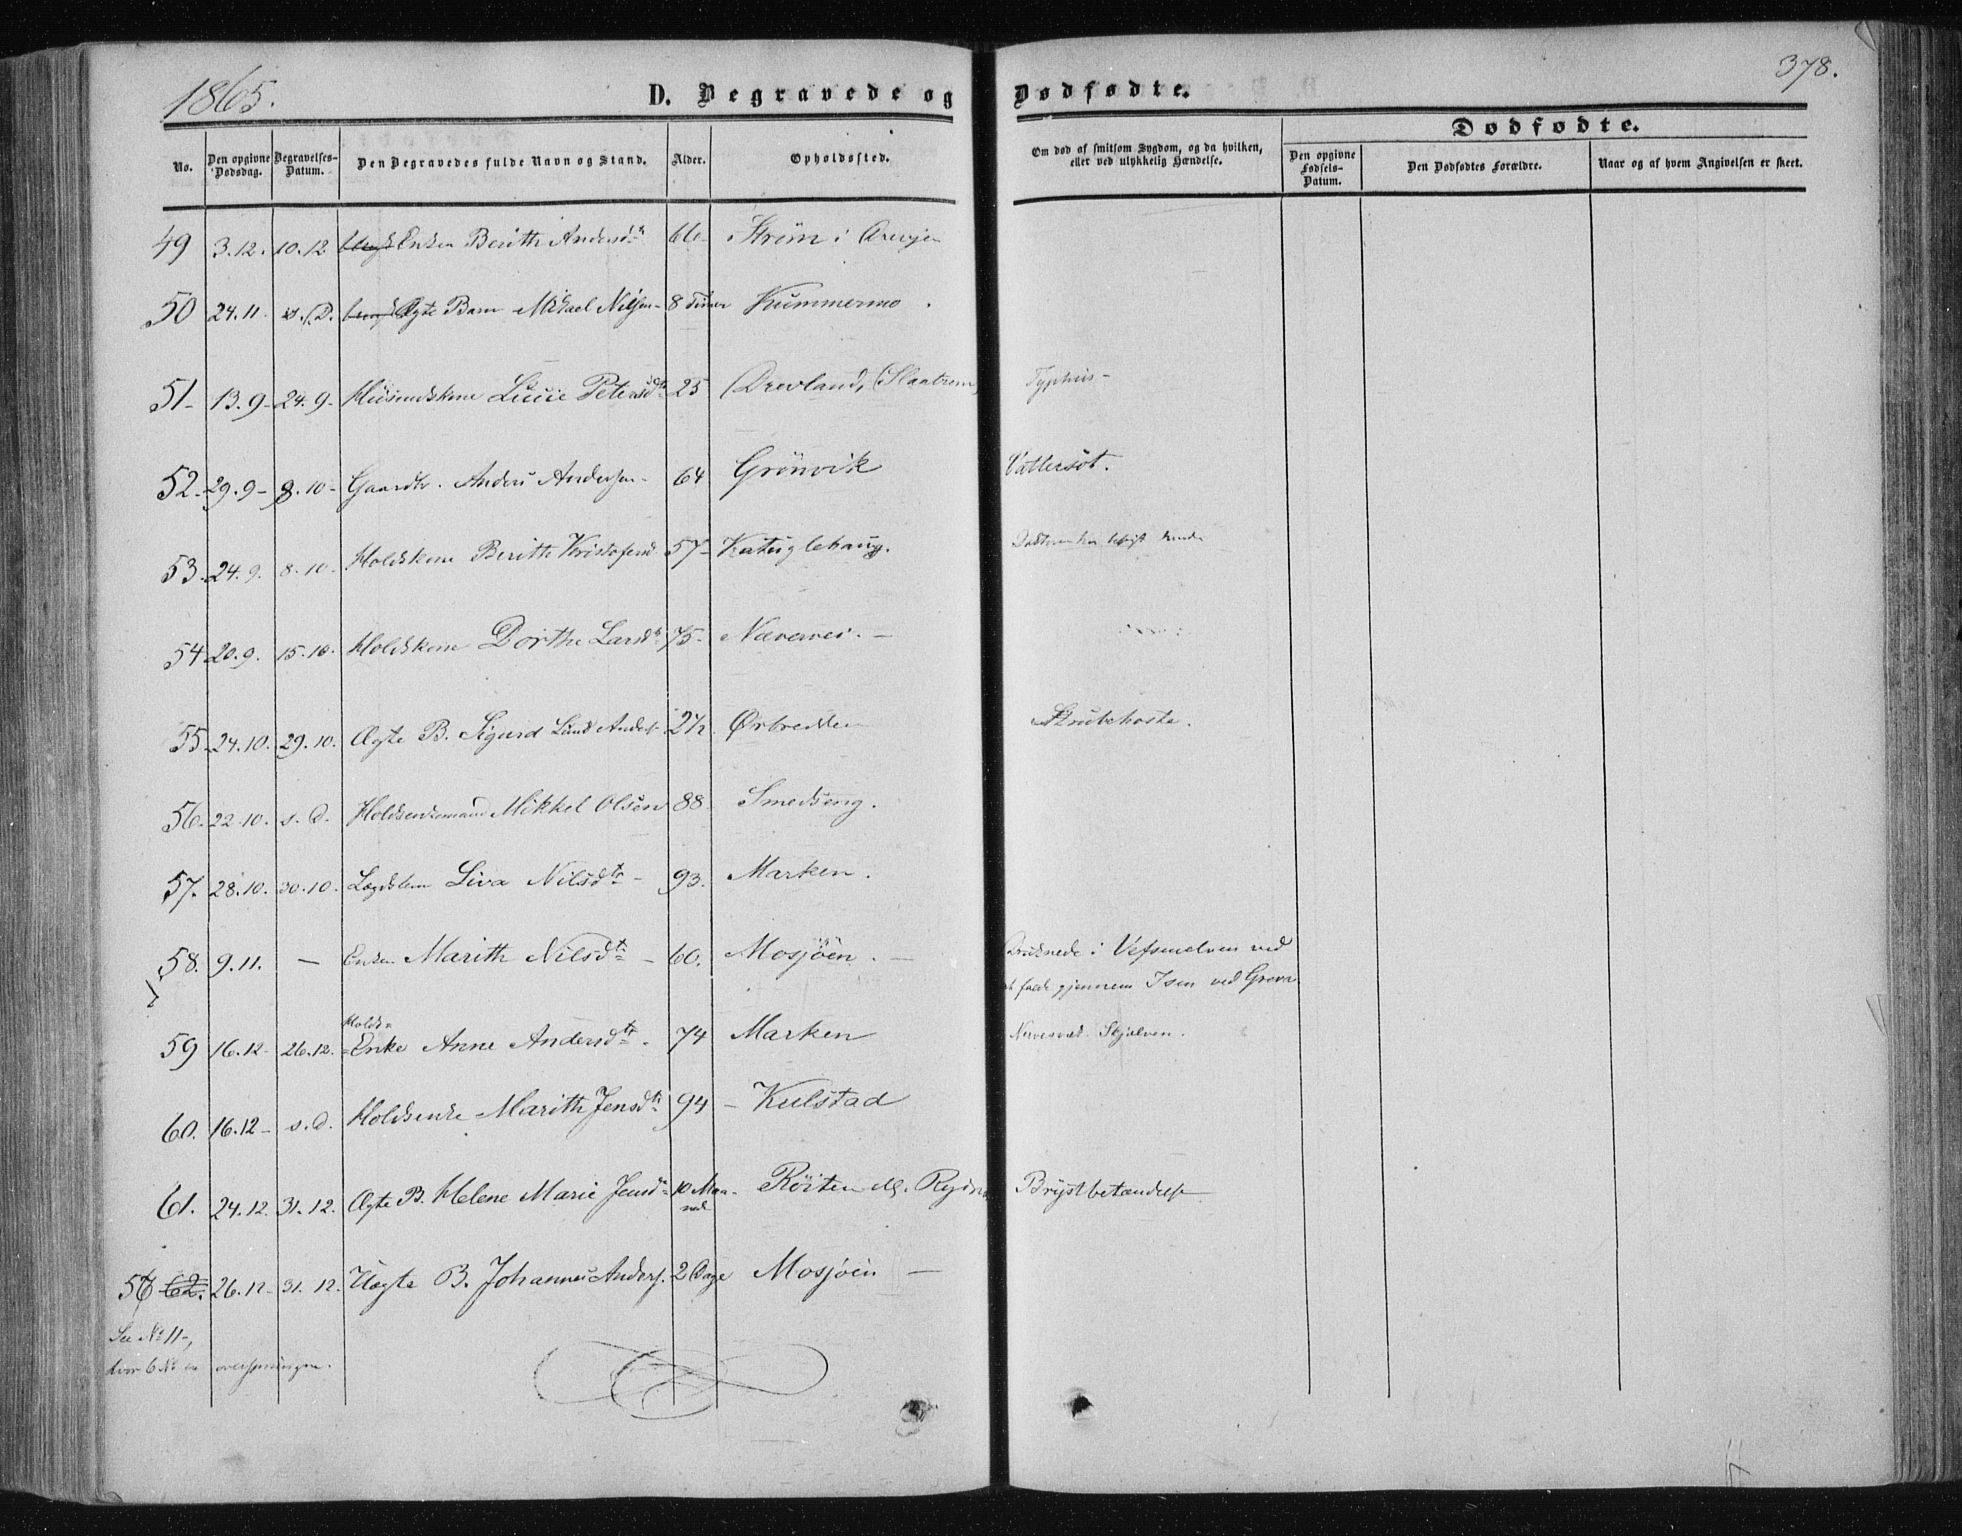 1865.
378.
D. Begravede og Dødfødte.
Dødfødte.
No. Den opgivne Dødsdag. Begravelses-Datum. Den Begravedes fulde Navn og Stand. Alder. Opholdssted. Om død af smitsom Sygdom, og da hvilken, eller ved ulykkelig Hændelse. Den opgivne Fødsels-Datum. Den Dødfødtes Forældre. Naar og af hvem Angivelsen er skeet.
49 3.12. 10.12 Enken Berith Andersdtr 66 Strøm i
50 24.11. s. D. Ægte Barn Mikael Nilsen 8 Timer Kummermo.
51- 13.9- 24.9- Huusmdskone Lucie Petersdtr 25 Drevland, Typhus-
52.- 29.9- 8.10- Gaardbr. Anders Andersen- 64 Grönvik Vattersot.
53. 24.9. 8.10- Holdskone Berith Kristofersd 57- Katuglehaug.
54 20.9. 15.10. Holdskone Dorthe Larsdtr 75-
55. 24.10. 29.10. Ægte B. Sigurd Lund Anders. 2½ Ørbredden Strubehoste.
56. 22.10. s. d. Holdsenkemand Mikkel Olsen 88 Smedseng.
57. 28.10. 30.10. Lægdslem Siva Nilsdtr- 93. Marken.
58. 9.11. — Enken Marith Nilsdtr- 60. Mosjöen. — Druknede i Vefsnelven ved
at falde gjennem Isen ved
59 16.12- 26.12. Holds-
Enke Anne Andersdtr. 74 Marken Skjælven.
60. 16.12- s. d. Holdsenke Marith Jensdtr 94 - Kulstad
61. 24.12. 31.12. Ægte B. Helene Marie Jensdtr 10 Maaned Röiten Brystbetændelse
56 62. 26.12- 31.12. Uægte B. Johannes Anders. 2 Dage Mosjöen —
See No 11-,
hvor 6 No er oversprungne.